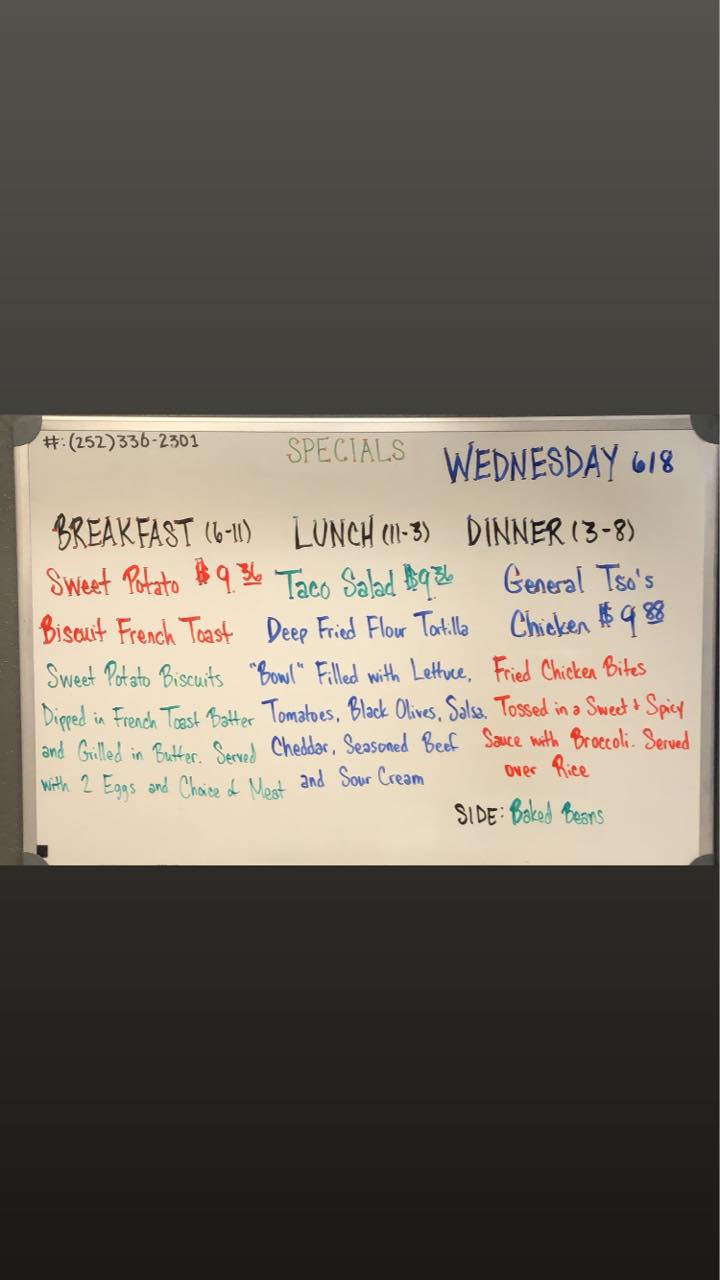 #:(252)336-2301
SPECIALS
WEDNESDAY 618
BREAKFAST (6-11)
Sweet Potato $9.36
Biscuit French Toast
Sweet Potato Biscuits
Dipped in French Toast Batter
and Grilled in Butter. Served
with 2 Eggs and Choice of Meat
LUNCH (11-3)
Taco Salad $9.36
Deep Fried Flour Tortilla
"Bowl" Filled with Lettuce,
Tomatoes, Black Olives, Salsa,
Cheddar, Seasoned Beef
and Sour Cream
DINNER (3-8)
General Tso's
Chicken $9.88
Fried Chicken Bites
Tossed in a Sweet & Spicy
Sauce with Broccoli. Served
over Rice
SIDE: Baked Beans